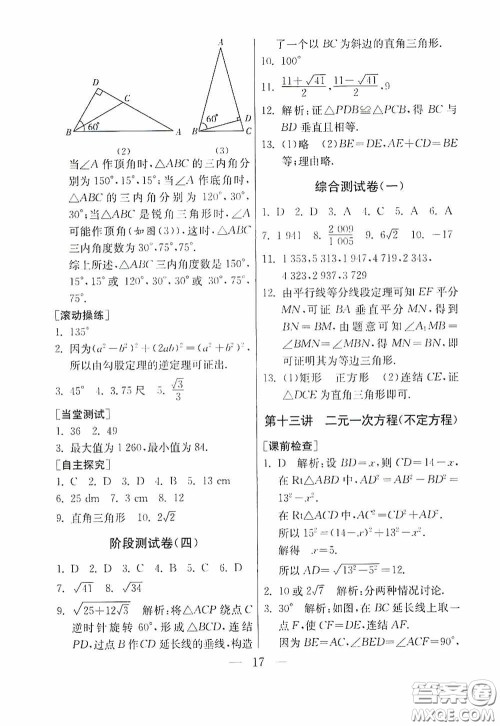 D
C
B
60°
A
(2)
A
D
60°
B
C
(3)
当∠A作顶角时,△ABC的三内角分
别为150°,15°,15°;当∠A作底角时,
△ABC的三内角分别为120°,30°,
30°;当△ABC是锐角三角形时,∠A
可能作顶角(如图(3)),这时△ABC
三内角度数为30°,75°,75°.
综上所述,△ABC三内角度数是150°,
15°,15°或120°,30°,30°或30°,75°,
75°.
[滚动操练]
1. 135°
2. 因为(a²-b²)²+(2ab)²=(a²+b²)²,
所以由勾股定理的逆定理可证出.
3. 45° 4. 3.75尺 5. √3/3
[当堂测试]
1. 36 2. 49
3. 最大值为1 260,最小值为84.
[自主探究]
1. C 2. D 3. D 4. B 5. C
6. 25 dm 7. 3 cm 8. 13 cm
9. 直角三角形 10. 2√2
阶段测试卷(四)
1. D 2. D 3. C 4. B 5. C 6. D
7. √41 8. √34
9. √(25+12√3) 解析:将△ACP绕点C
逆时针旋转60°,形成△BCD,连结
PD,过点B作CD延长线的垂线,构造
了一个以BC为斜边的直角三角形.
10. 100°
11. (11+√41)/2, (11-√41)/2, 9
12. 解析:证△PDB≌△PCB,得BC与
BD垂直且相等.
13. (1)略 (2)BE=DE,AE+CD=BE
等;理由略.
综合测试卷(一)
1. D 2. D 3. A 4. C 5. A 6. A
7. 1 941 8. 2 009/1 005 9. 6√2 10. -17
11. 1 353,5 313,1 947,4 719,2 343,
4 323,2 937,3 729
12. 由平行线等分线段定理可知EF平分
MN,可证AB垂直平分MN,得到
BN=BM,由题意可知∠A₁MB
=∠BMN=∠MBN,得BN=MN,即
可证明其为等边三角形.
13. (1)矩形 正方形 (2)连结CE,证
△DCE为直角三角形即可.
第十三讲 二元一次方程(不定方程)
[课前检查]
1. D 解析:设BD=x,则CD=14-x,
在Rt△ABD中,AD²=AB²-BD²=
13²-x².
在Rt△ACD中,AC²=CD²+AD²
所以15²=(14-x)²+13²-x².
解得 x=5.
所以AD=√(13²-5²)=12.
2. 10或2√7 解析:分两种情况讨论.
3. 30° 解析:如图,在BC延长线上取一
点F,使CF=DB,连结AF.
因为BE=AC,∠BED=∠ACF=90°,
17
答案圈
MXQE.COM